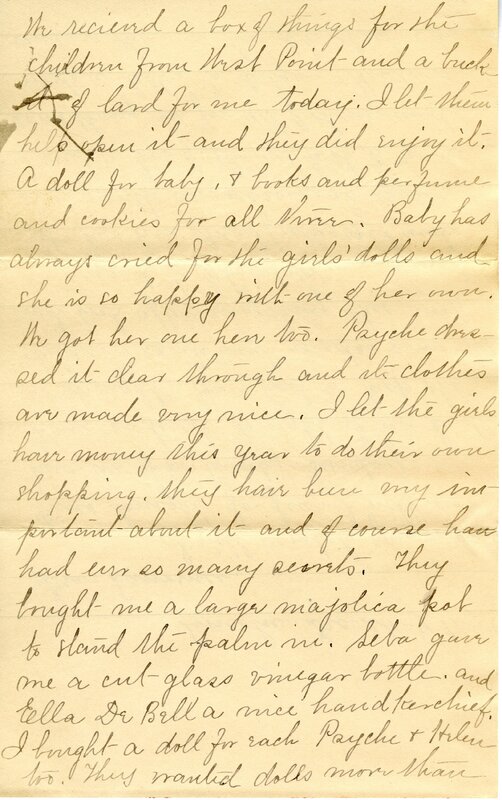 We recieved a box of things for the
children from West Point and a buck
et of lard for me today. I let them
help open it and they did enjoy it.
A doll for baby, & books and perfume
and cookies for all three. Baby has
always cried for the girls' dolls and
she is so happy with one of her own.
We got her one here too. Psyche dres-
sed it clear through and its clothes
are made very nice. I let the girls
have money this year to do their own
shopping. they have been very im-
portant about it and of course have
had ever so many secrets. They
bought me a large majolica pot
to stand the palm in. Seba gave
me a cut-glass vinegar bottle. and
Ella De Bell a nice handkerchief.
I bought a doll for each Psyche & Helen
too. They wanted dolls more than